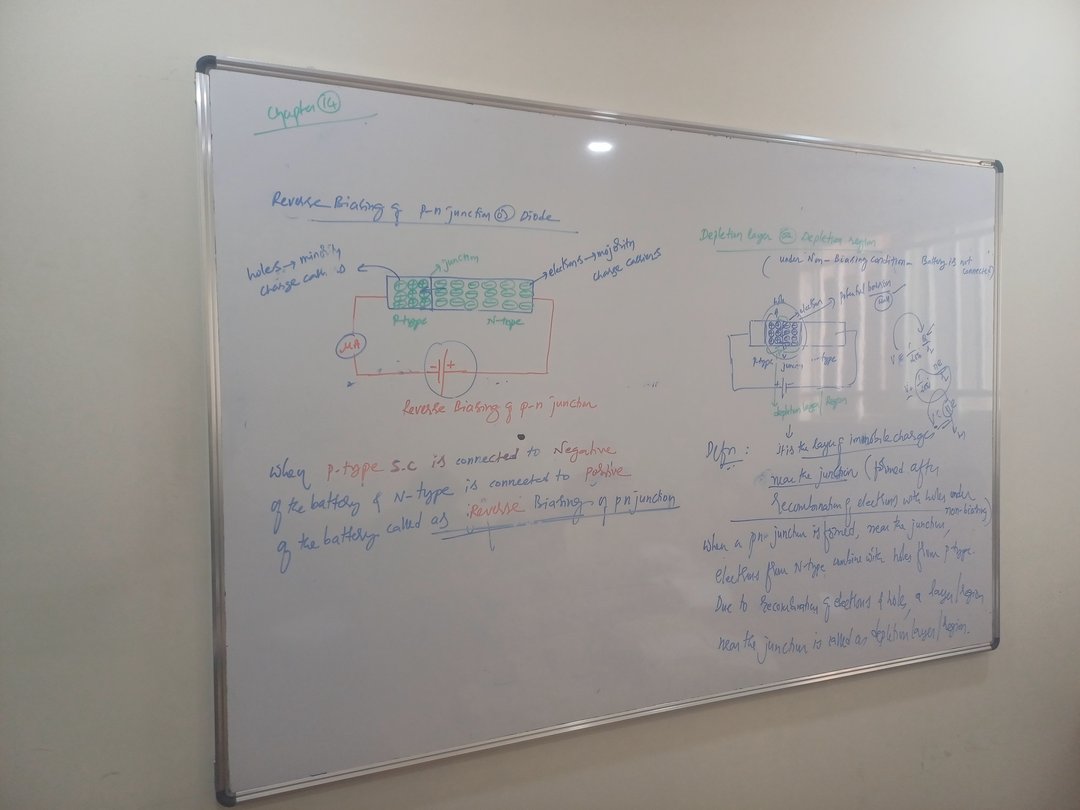 Chapter 14
Reverse Biasing of p-n junction or Diode
holes → minority
charge
junction
electrons → majority
charge carriers
P-type N-type
μA
- +
Reverse Biasing of p-n junction
When p-type S.C is connected to Negative
of the battery & N-type is connected to Positive
of the battery called as Reverse Biasing of pn junction
Depletion layer or Depletion region
(under Non-Biasing condition - Battery is not
connected)
hole
electron
potential barrier
P-type junction -type
+ -
depletion layer/Region
Defn: it is the layer of immobile charges
near the junction (formed after
Recombination of electrons with holes under
non-biasing)
When a pn junction is formed, near the junction,
electrons from N-type combine with holes from p-type
Due to recombination of electrons & hole, a layer/region
near the junction is called as depletion layer/region.